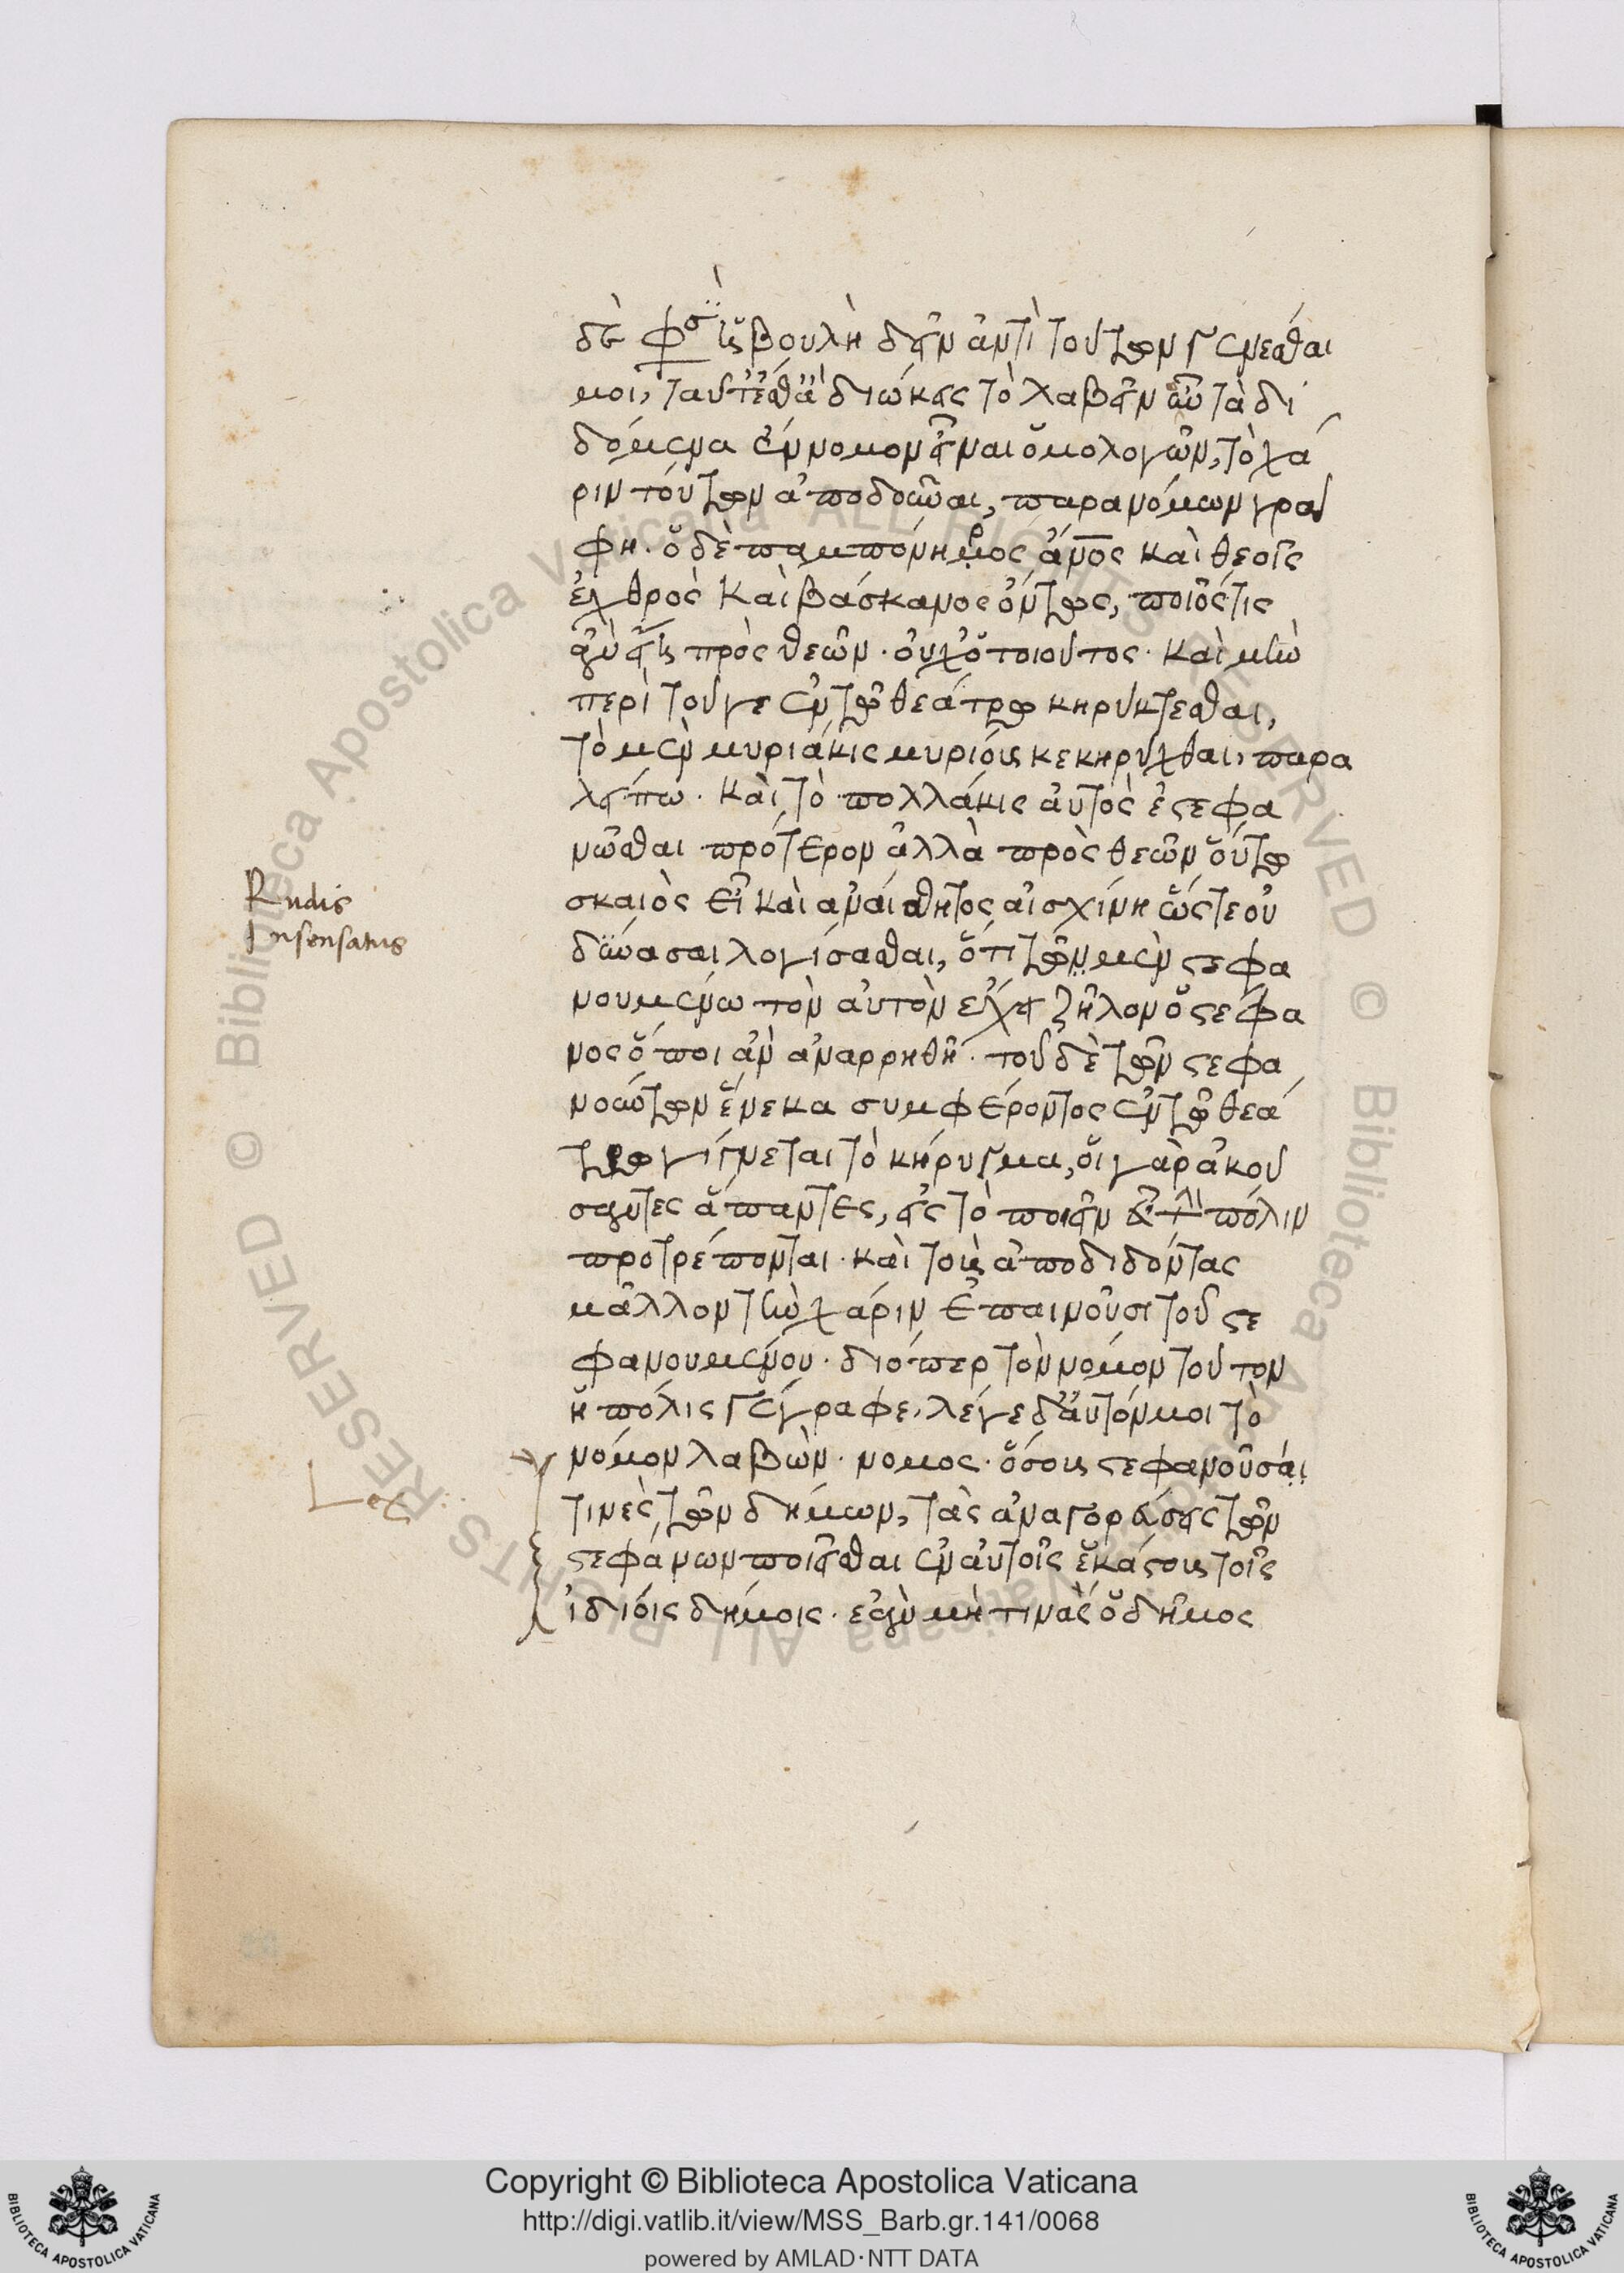 δὲ φησὶν ἡ βουλὴ δεῖν ἀντὶ τούτων γενέσθαι
μοι, ταῦτ' ἔσθ' ἃ διώκεις τὸ λαβεῖν οὖν τὰ δι
δόμενα ἔννομον εἶναι ὁμολογῶν, τὸ χά
ριν τούτων ἀποδοῦναι, παρανόμων γρά
φῃ. ὁ δὲ παμπόνηρος ἄνος καὶ θεοῖς
ἐχθρὸς καὶ βάσκανος ὄντως, ποῖός τις
ἂν εἴη πρὸς θεῶν. οὐχ ὁ τοιοῦτος. καὶ μὴν
περὶ τοῦ γε ἐν τῷ θεάτρῳ κηρύκτεσθαι,
τὸ μὲν μυριάκις μυρίους κεκηρύχθαι, παρα
λείπω. καὶ τὸ πολλάκις αὐτὸς ἐστεφα
νῶσθαι πρότερον ἀλλὰ πρὸς θεῶν οὕτω
σκαιὸς εἶ καὶ ἀναίσθητος αἰσχίνη ὥστε οὐ
Rudis
Insensatus
δύνασαι λογίσασθαι, ὅτι τῷ μὲν στεφα
νουμένω τὸν αὐτὸν ἔχει ζῆλον ὁ στέφα
νος ὅποι ἂν ἀναρρηθῆ. τοῦ δὲ τῶν στεφα
νούντων ἕνεκα συμφέροντος ἐν τῷ θεά
τρῳ γίγνεται τὸ κήρυγμα, οἱ γὰρ ἀκού
σαντες ἅπαντες, εἰς τὸ ποιεῖν εὖ τὴν πόλιν
προτρέπονται. καὶ τοὺς ἀποδιδόντας
μᾶλλον τὴν χάριν ἐπαινοῦσι τοῦ στε
φανουμένου. διόπερ τὸν νόμον τοῦτον
ἡ πόλις γέγραφε, λέγε δ' αὐτόν μοι τὸ
νόμον λαβών. νομος. ὅσους στεφανοῦσί
Lex
τινες τῶν δήμων, τὰς ἀναγορεύσεις τῶν
στεφάνων ποιεῖσθαι ἐν αὐτοῖς ἑκάστους τοῖς
ἰδίοις δήμοις. ἐὰν μή τινας ὁ δῆμος
Copyright © Biblioteca Apostolica Vaticana
http://digi.vatlib.it/view/MSS_Barb.gr.141/0068
powered by AMLAD·NTT DATA
BIBLIOTECA APOSTOLICA VATICANA
BIBLIOTECA APOSTOLICA VATICANA
© Biblioteca Apostolica Vaticana ALL RIGHTS RESERVED
© Biblioteca Apostolica Vaticana ALL RIGHTS RESERVED